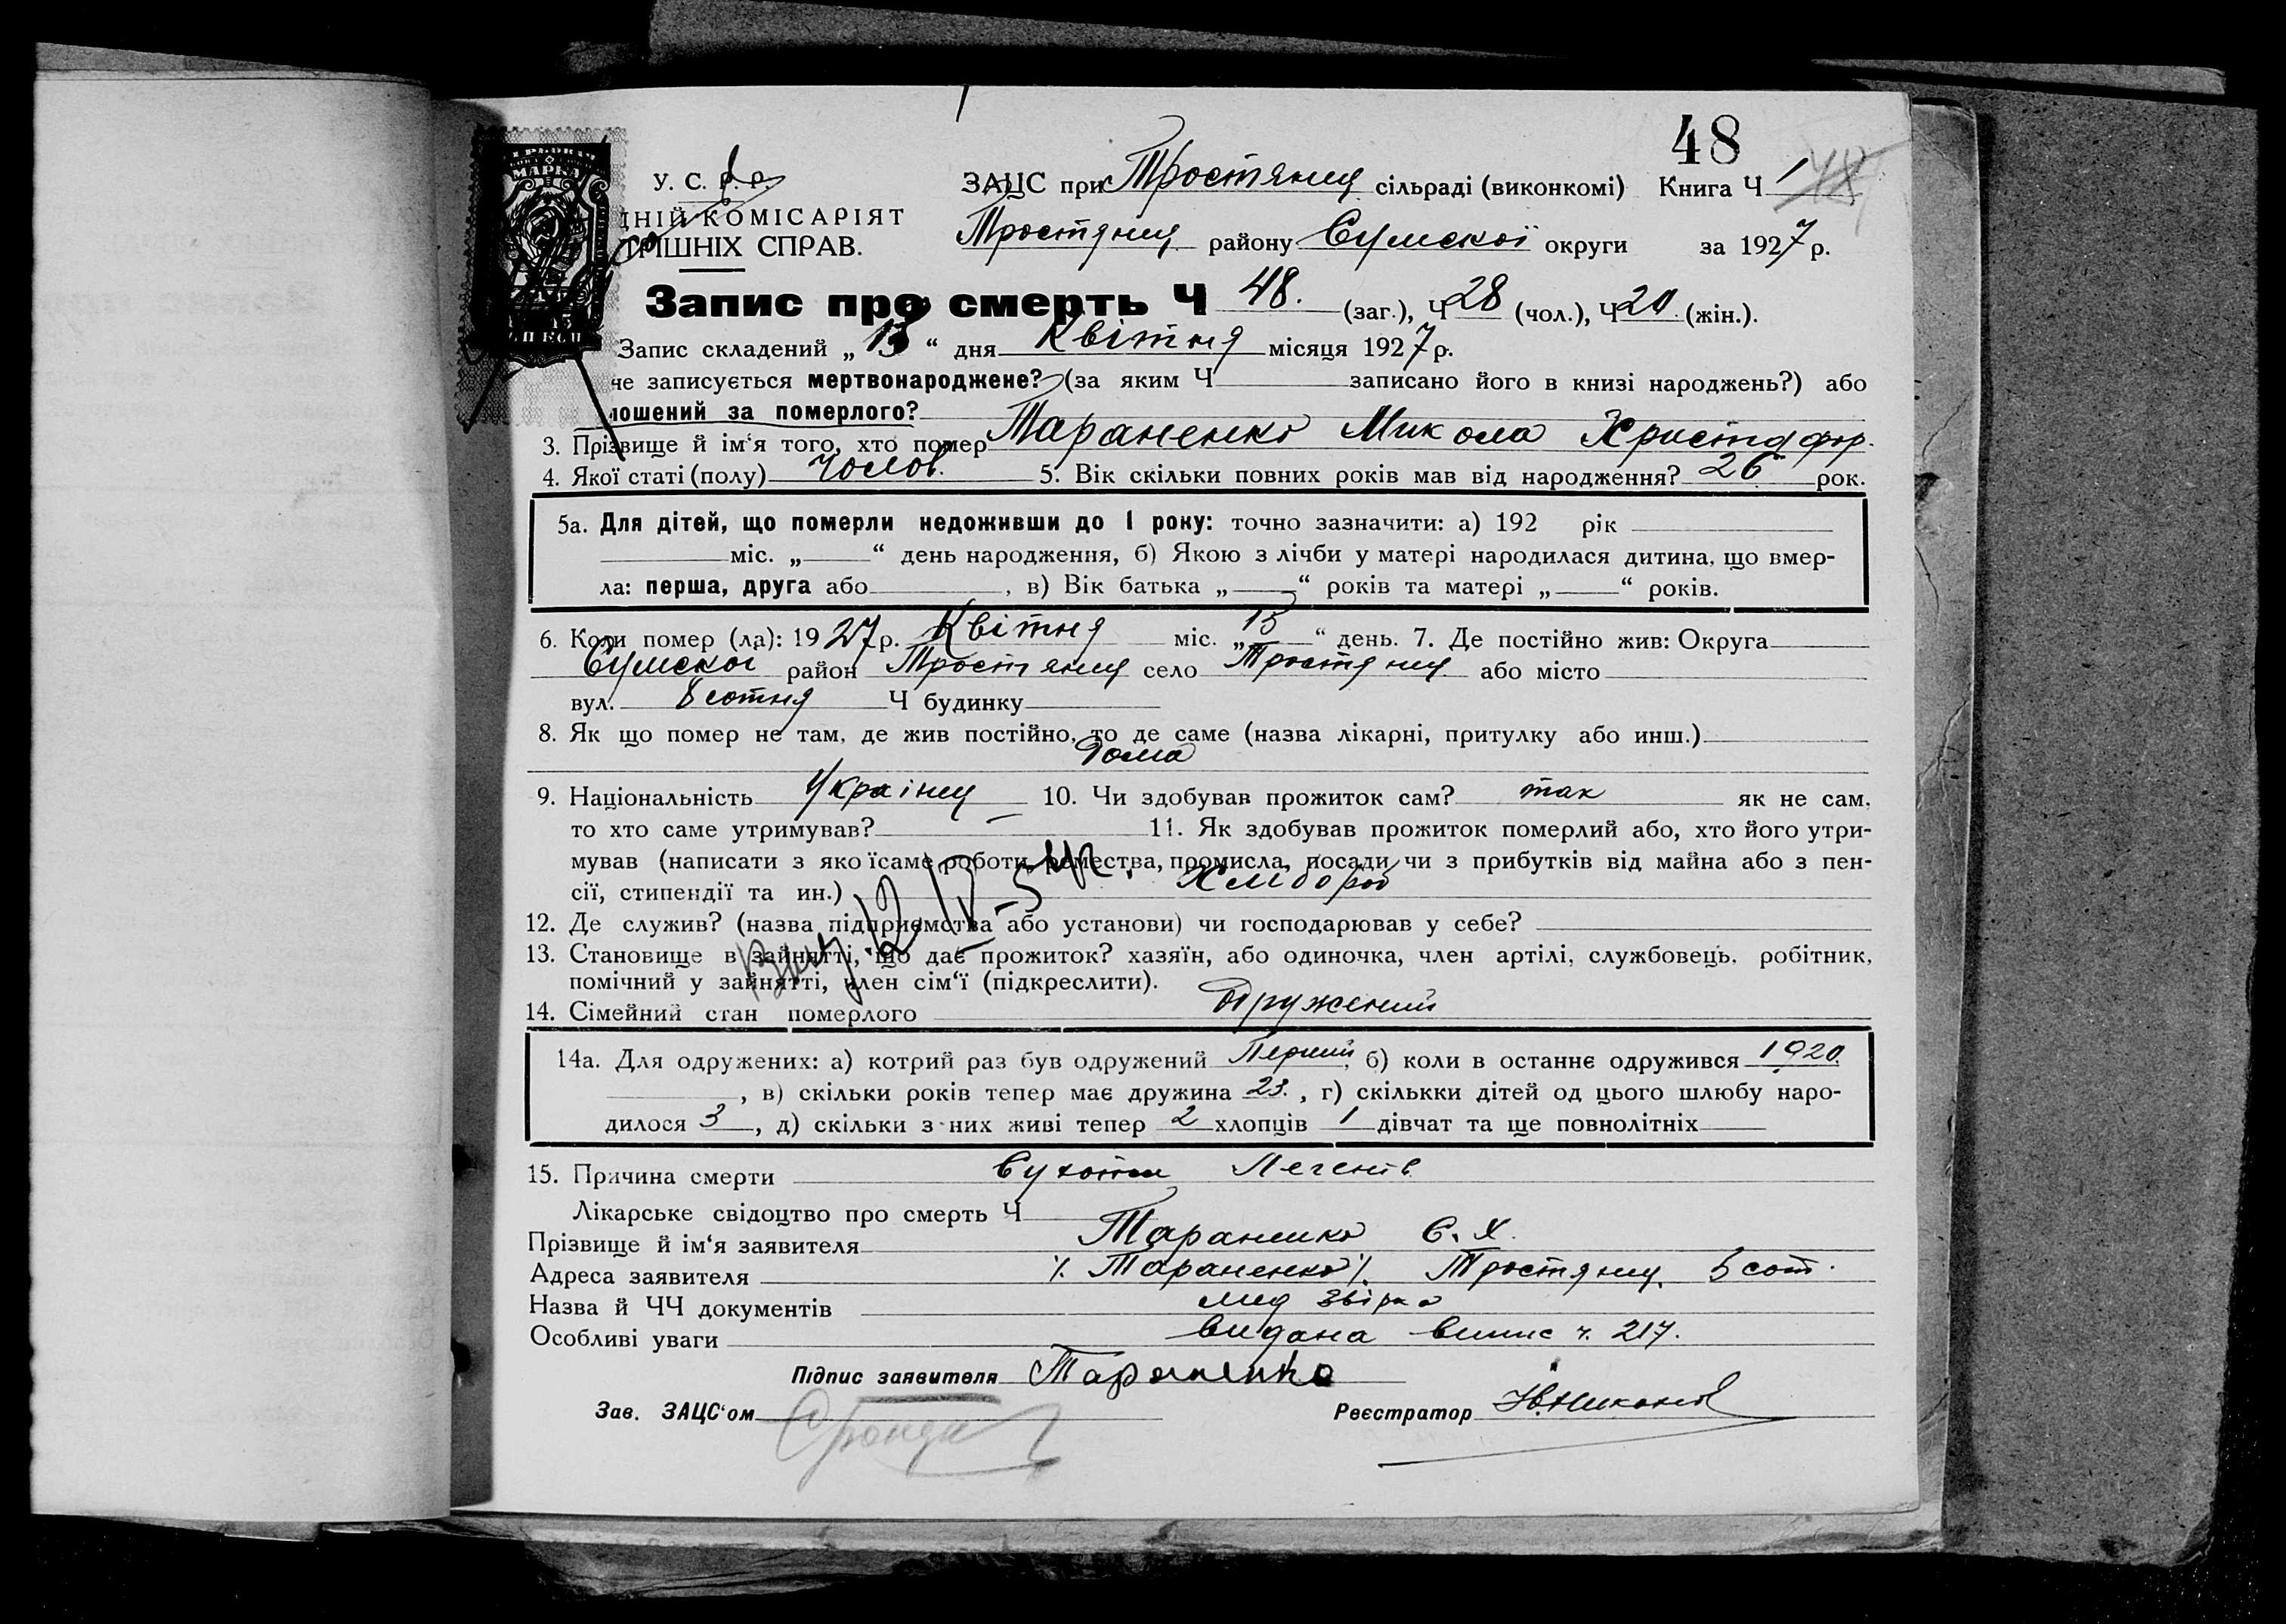 48
У. С. Р. Р.
ЗАЦС при Тростянец сільраді (виконкомі) Книга Ч 1
ДНІЙ КОМІСАРІЯТ
Тростянец району Сумскої округи за 1927 р.
ТРІШНІХ СПРАВ.
МАРКА
Запис про смерть Ч 48. (заг.), Ч 28 (чол.), Ч 20 (жін.).
Запис складений „ 13 “ дня Квітня місяця 1927 р.
че записується мертвонароджене? (за яким Ч записано його в книзі народжень?) або
лошений за померлого?
3. Прізвище й ім‘я того, хто помер Тараненко Микола Христофор.
4. Якої статі (полу) чолов. 5. Вік скільки повних років мав від народження? 26 рок.
5а. Для дітей, що померли недоживши до 1 року: точно зазначити: а) 192 рік
міс. „ “ день народження, б) Якою з лічби у матері народилася дитина, що вмер-
ла: перша, друга або , в) Вік батька „ “ років та матері „ “ років.
6. Коли помер (ла): 1927 р. Квітня міс. „ 13 “ день. 7. Де постійно жив: Округа
Сумскої район Тростянец село Тростянец або місто
вул. сотня Ч будинку
8. Як що помер не там, де жив постійно, то де саме (назва лікарні, притулку або инш.)
Дома
9. Національність Українец 10. Чи здобував прожиток сам? так як не сам,
то хто саме утримував? 11. Як здобував прожиток померлий або, хто його утри-
мував (написати з якоїсаме роботи, ремества, промисла, посади чи з прибутків від майна або з пен-
сії, стипендії та ин.) Хлібороб
12. Де служив? (назва підприємства або установи) чи господарював у себе?
13. Становище в зайнятті, що дає прожиток? хазяїн, або одиночка, член артілі, службовець, робітник,
помічний у зайнятті, член сім‘ї (підкреслити).
14. Сімейний стан померлого Одружений
14а. Для одружених: а) котрий раз був одружений Перший, б) коли в останнє одружився 1920
, в) скільки років тепер має дружина 23. , г) скількки дітей од цього шлюбу наро-
дилося 3 , д) скільки з них живі тепер 2 хлопців 1 дівчат та ще повнолітніх
15. Причина смерти Сухоти Легенів
Лікарське свідоцтво про смерть Ч
Прізвище й ім‘я заявителя Тараненко Є. Х.
Адреса заявителя Тараненко Тростянец. 5 сот.
Назва й ЧЧ документів звірка
Особливі уваги видана випис ч. 217.
Підпис заявителя Тараненко
Зав. ЗАЦС‘ом
Реєстратор